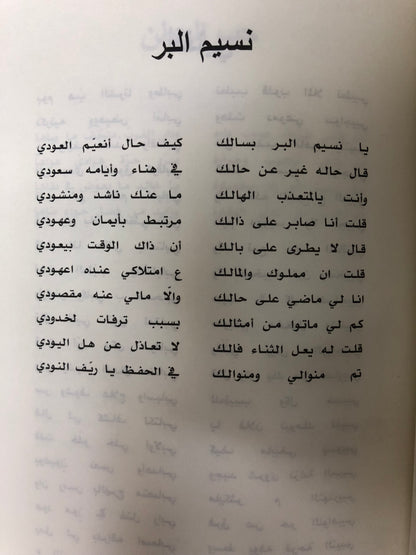 نسيم البر
يا نسيم البر بسالك كيف حال أنعيّم العودي
قال حاله غير عن حالك في هناء وأيامه سعودي
وأنت يالمتعذب الهالك ما عنك ناشد ومنشودي
قلت أنا صابر على ذالك مرتبط بأيمان وعهودي
قال لا يطرى على بالك أن ذاك الوقت بيعودي
قلت ان مملوك والمالك ع امتلاكي عنده اعهودي
انا لي ماضي على حالك والّا مالي عنه مقصودي
كم لي ماتوا من أمثالك بسبب ترفات لخدودي
قلت له يعل الثناء فالك لا تعاذل عن هل اليودي
تم منوالي ومنوالك في الحفظ يا ريّف النودي